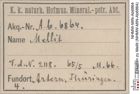 K. k. naturh. Hofmus. Mineral.-petr. Abt.
Akq.-Nr. A.b. 6864.
Name Mellit
V.d.N. 65/5 M.66.
Fundort. Artern, Thüringen
4.